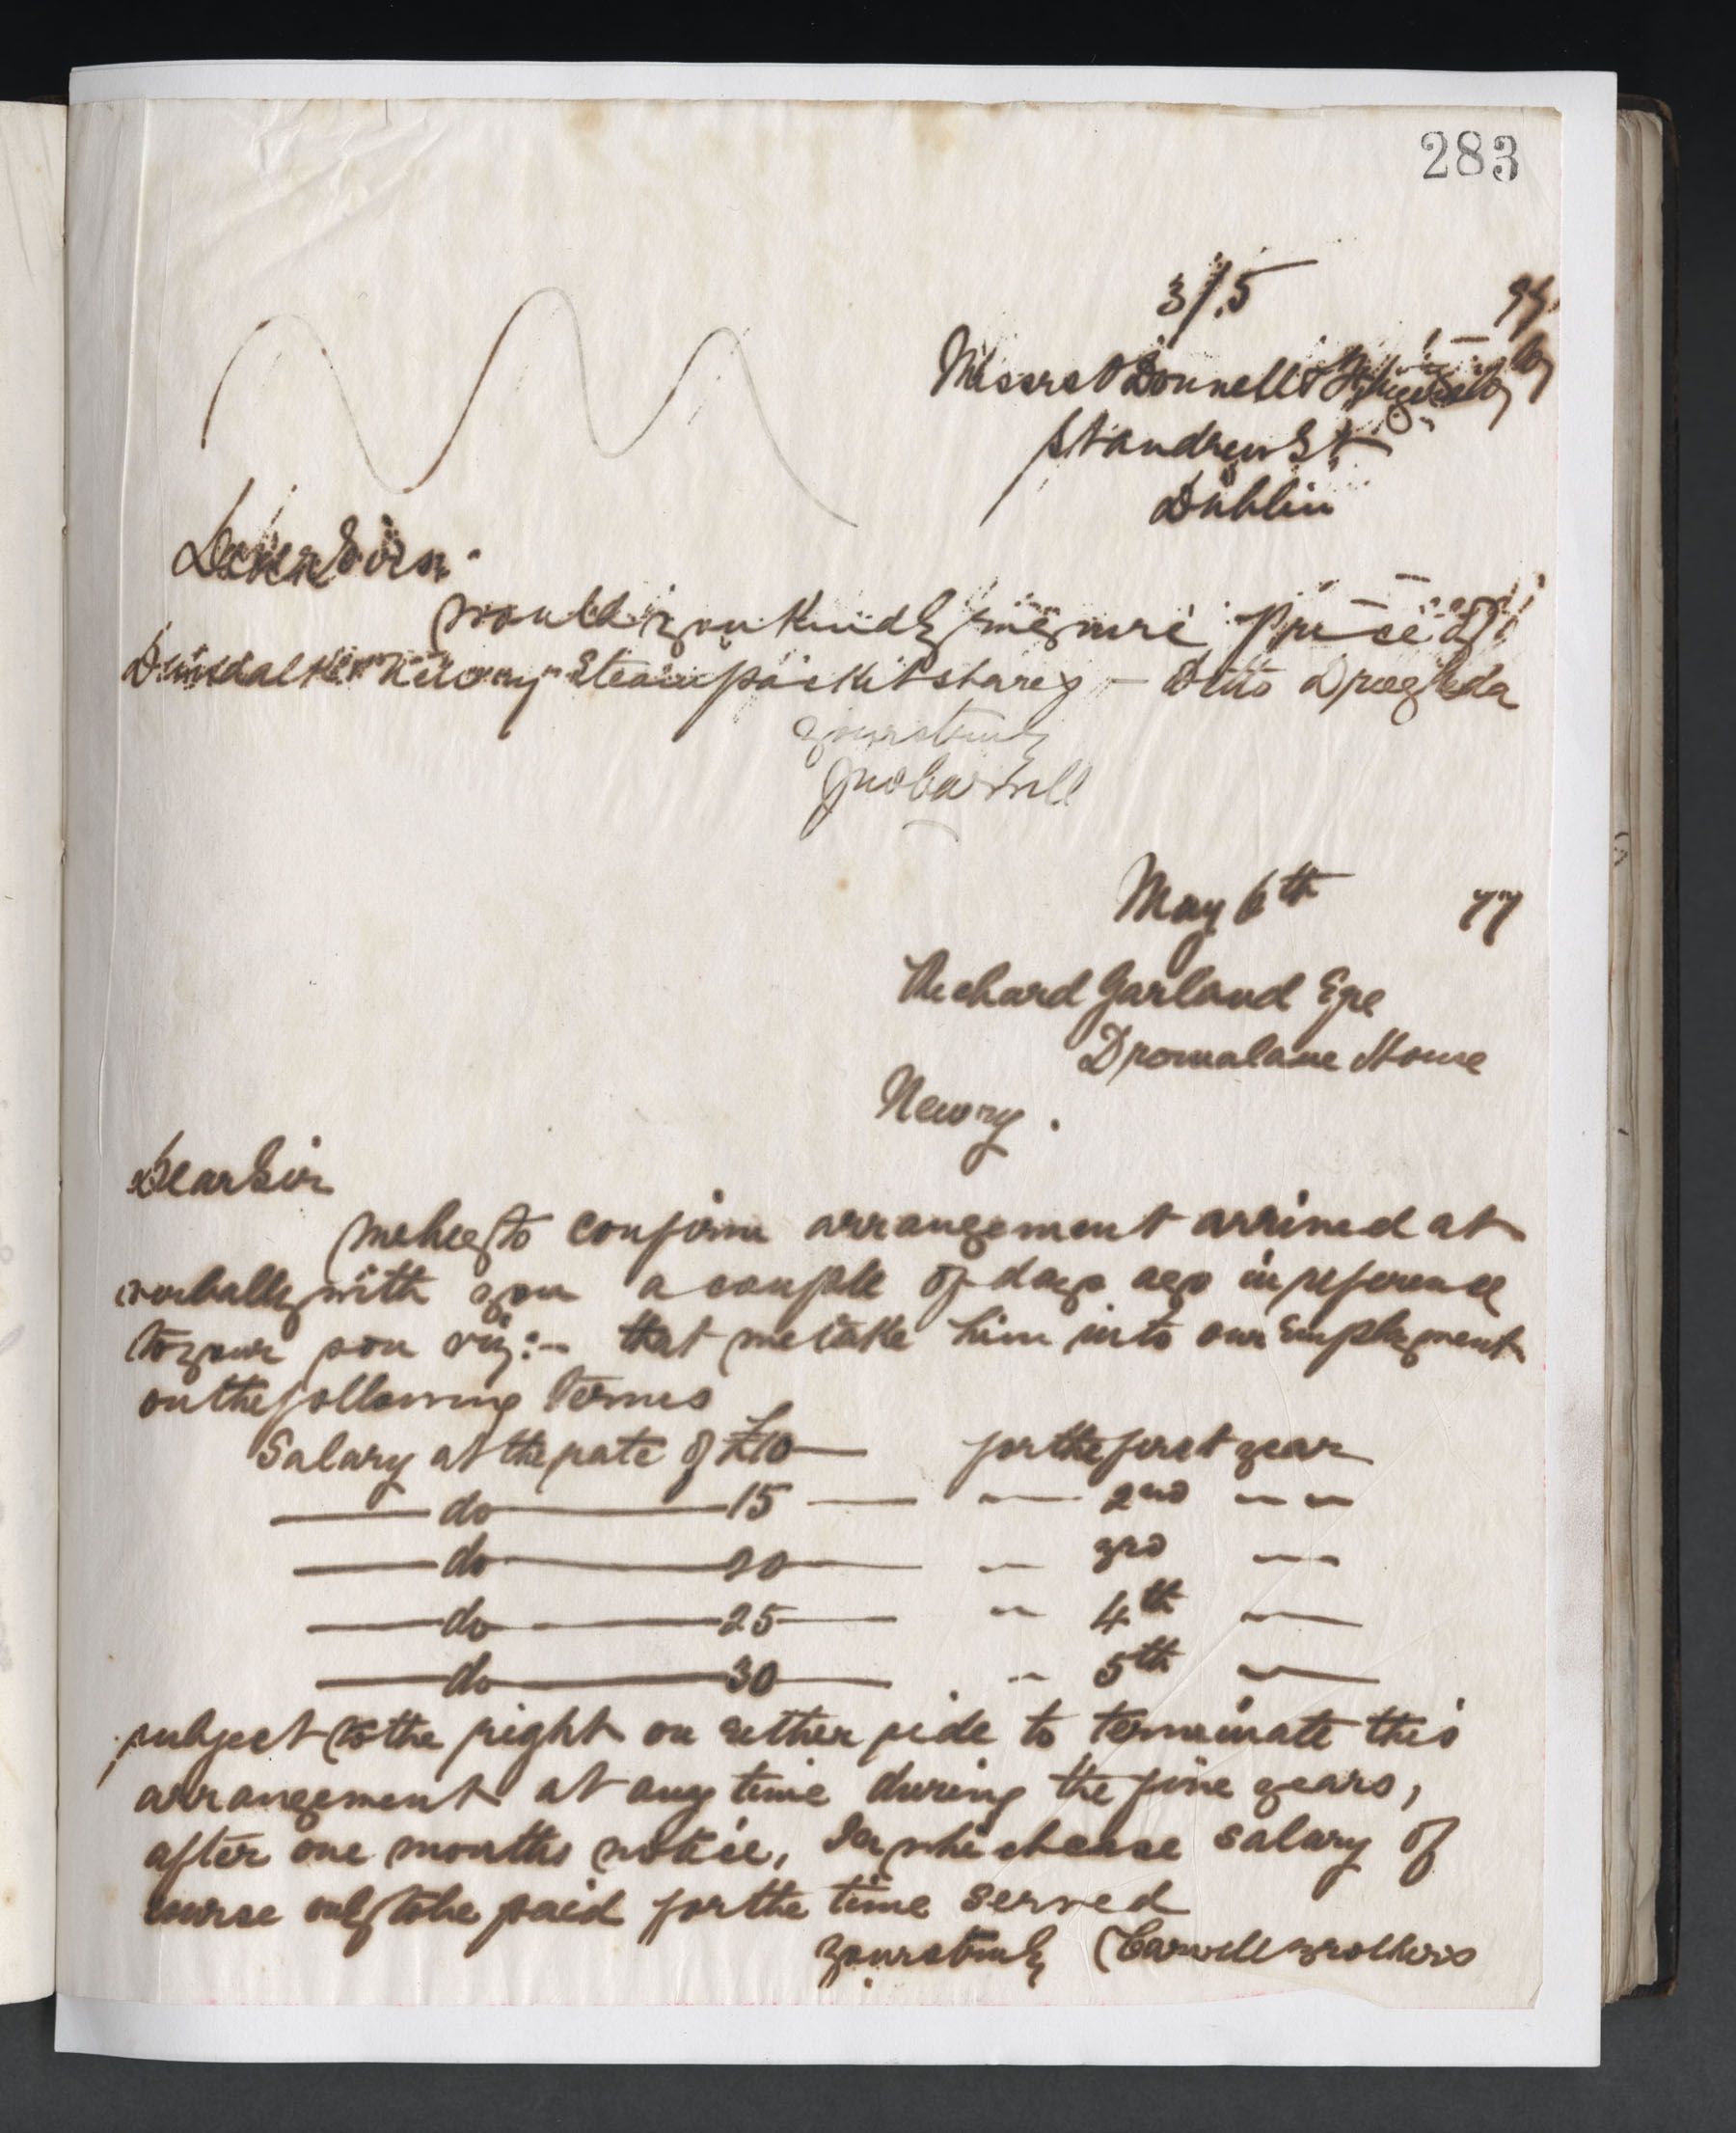 283
3/5 77
Messrs O Donnell & Fitzgerald
St Andrew St
Dublin
Dear Sirs.
would you kindly give me price of
Dundalk & Newry Steam packet shares - Ditto Drogheda
yours truly
Jno Carvill
May 6th 77
Richard Garland Eqe
Dromalane House
Newry.
Dear Sir
we beg to confirm arrangement arrived at
verbally with you a couple of days ago in reference
to your son viz:- that we take him into our Employment
on the following terms
Salary at the rate of £10 — for the first year
— do — 15 — " 2nd " "
— do — 20 — " 3rd "
— do — 25 — " 4th "
— do — 30 — " 5th "
subject to the right on either side to terminate this
arrangement at any time during the five years,
after one months notice, In which case salary of
course only to be paid for the time served
yours truly Carvill Brothers